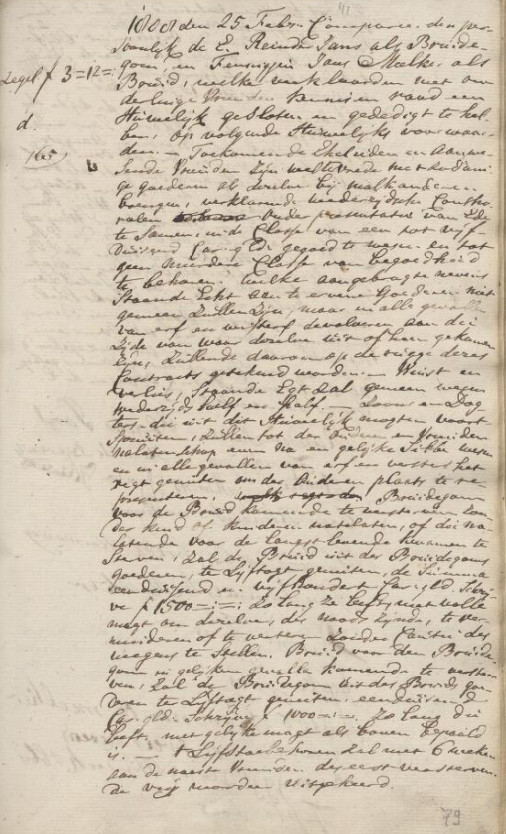 1808 den 25 Febr: Compareerden per-
soonlijk de E. Reinder Jans als Bruide-
gom, en Fennigjen Jans Mulder als
Bruid, welke verklaarden met on-
derlinge Vrienden kennis en raad een
Huwelijk gesloten en gededigt te heb-
ben, op volgende Huwelijks voorwaar-
den. — Toekomende Eheluiden en aanwe-
zende Vrienden zijn wel tevrede met zodani-
ge goederen als dezelve bij malkanderen
brengen, verklarende wederzijdsche Contho-
ralen onder presentatie van Ede
te samen, in de Classe van een tot vijf
duizend Car: glds gegoed te wezen en tot
geen minderen Classe van begoedheid
te behoren. Welke aangebragte nevens
staande Echt aan te ervene Goederen niet
gemeen zullen zijn, maar in alle gevallen
van erf en versterf devolveren aan die
zijde van waar dezelve uit of heen gekomen
zijn, zullende daarom op de rugge dezes
Contracts getekend worden. — Winst en
verlies, staande Egt zal gemeen wezen
wederzijds half en half. Zoons en Dog-
ters die uit dit Huwelijk mogten voort
spruiten, zullen tot der Ouderen en Vrienden
nalatenschap even na en gelijke Sibbe wezen
en in alle gevallen van erf en versterf het
regt genieten om der Ouderen plaats te re-
presenteren, Bruidegom
voor de Bruid komende te versterven zon-
der kind of kinderen natelaten, of die na-
latende voor de langstlevende kwamen te
sterven, zal de Bruid uit des Bruidegoms
goederen, te Lijftogt genieten, de Summa
van duizend en vijfhondert Car: gld. Schrij-
ve ƒ 1500 =:=: Zo lang ze leeft, met volle
magt om dezelve, des noods zijnde, te ver-
minderen of te verteren zonder Cautie des
weegens te stellen. Bruid voor den Bruide-
gom in gelijken gevalle komende te verster-
ven, zal de Bruidegom uit des Bruids goe-
deren te Lijftogt genieten, eenduizend
Car: gld: Schrijve ƒ 1000 =:=: Zo lang die
leeft, met gelijke magt als boven bepaald
is. — 't Lijfstoebehoren zal met 6 weken
aan de naaste Vrienden des eerst versterven-
de vrij worden uitgekeerd.
Zegel ƒ 3=12=:
d.
165
79